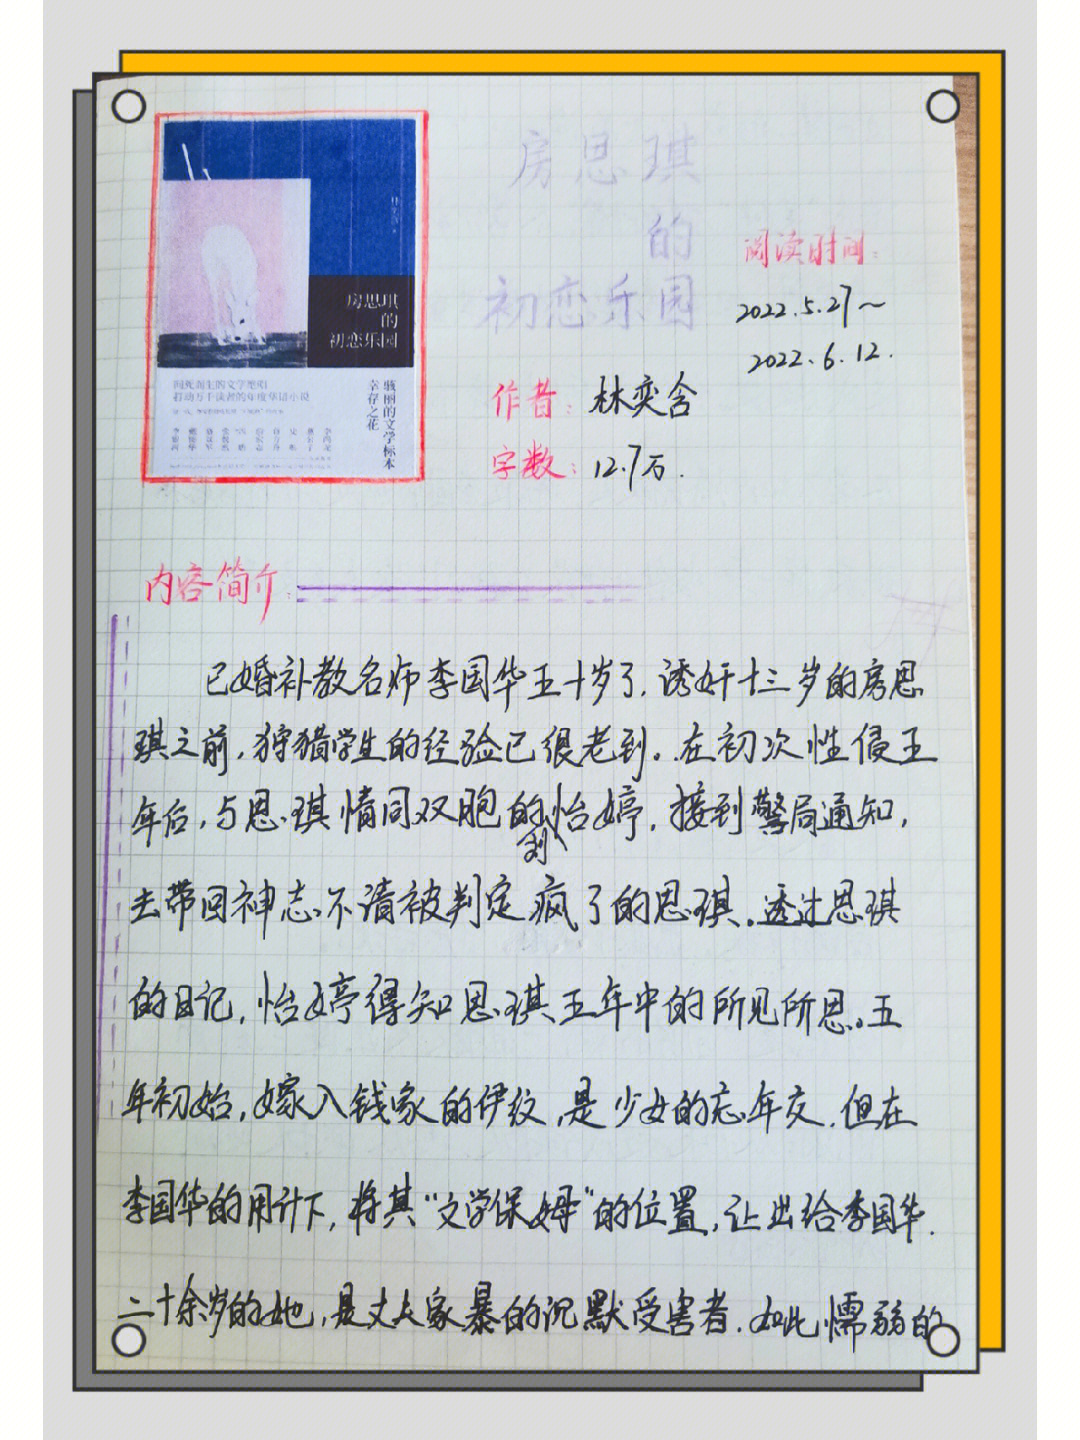 房思琪
的
初恋乐园
阅读时间：
2022.5.27～
2022.6.12.
作者：林奕含
字数：12.7万.
房思琪
的
初恋乐园
打动万千读者的年度华语小说
骇丽的文学标本
幸存之花
内容简介：
已婚补教名师李国华五十岁了.诱奸十三岁的房思
琪之前,狩猎学生的经验已很老到。在初次性侵五
年后,与思琪情同双胞的刘怡婷,接到警局通知,
去带回神志不清被判定疯了的思琪。透过思琪
的日记,怡婷得知思琪五年中的所见所思。五
年初始,嫁入钱家的伊纹,是少女的忘年交.但在
李国华的用计下,将其“文学保姆”的位置,让出给李国华.
二十余岁的她,是丈夫家暴的沉默受害者.如此懦弱的